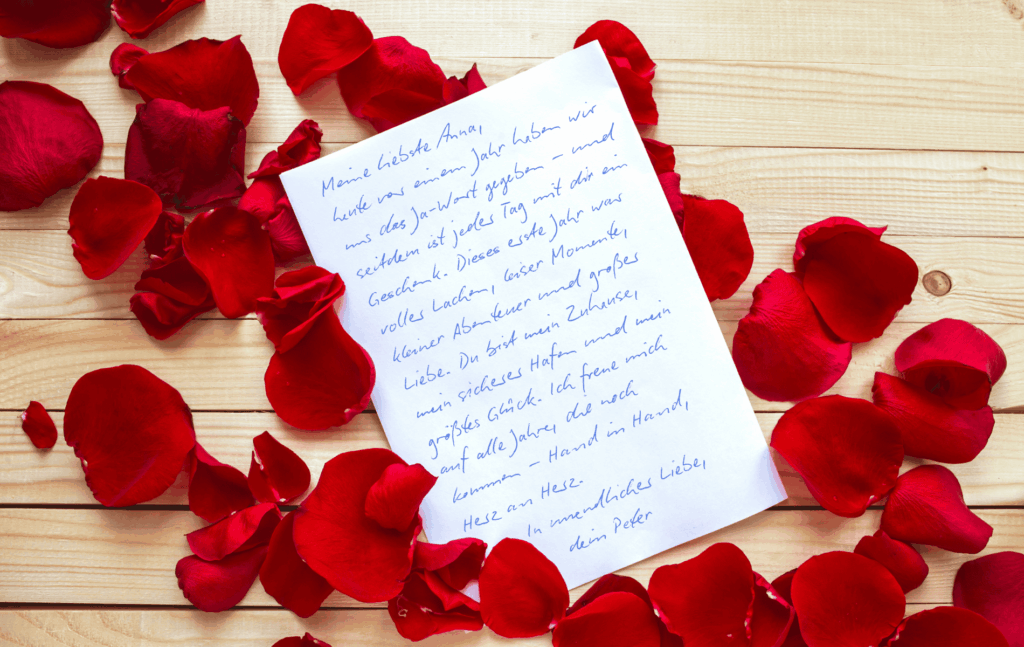 Meine liebste Anna,
heute vor einem Jahr haben wir
uns das Ja-Wort gegeben – und
seitdem ist jeder Tag mit dir ein
Geschenk. Dieses erste Jahr war
voller Lachen, leiser Momente,
kleiner Abenteuer und großer
Liebe. Du bist mein Zuhause,
mein sicherer Hafen und mein
größtes Glück. Ich freue mich
auf alle Jahre, die noch
kommen – Hand in Hand,
Herz an Herz.
In unendlicher Liebe,
dein Peter